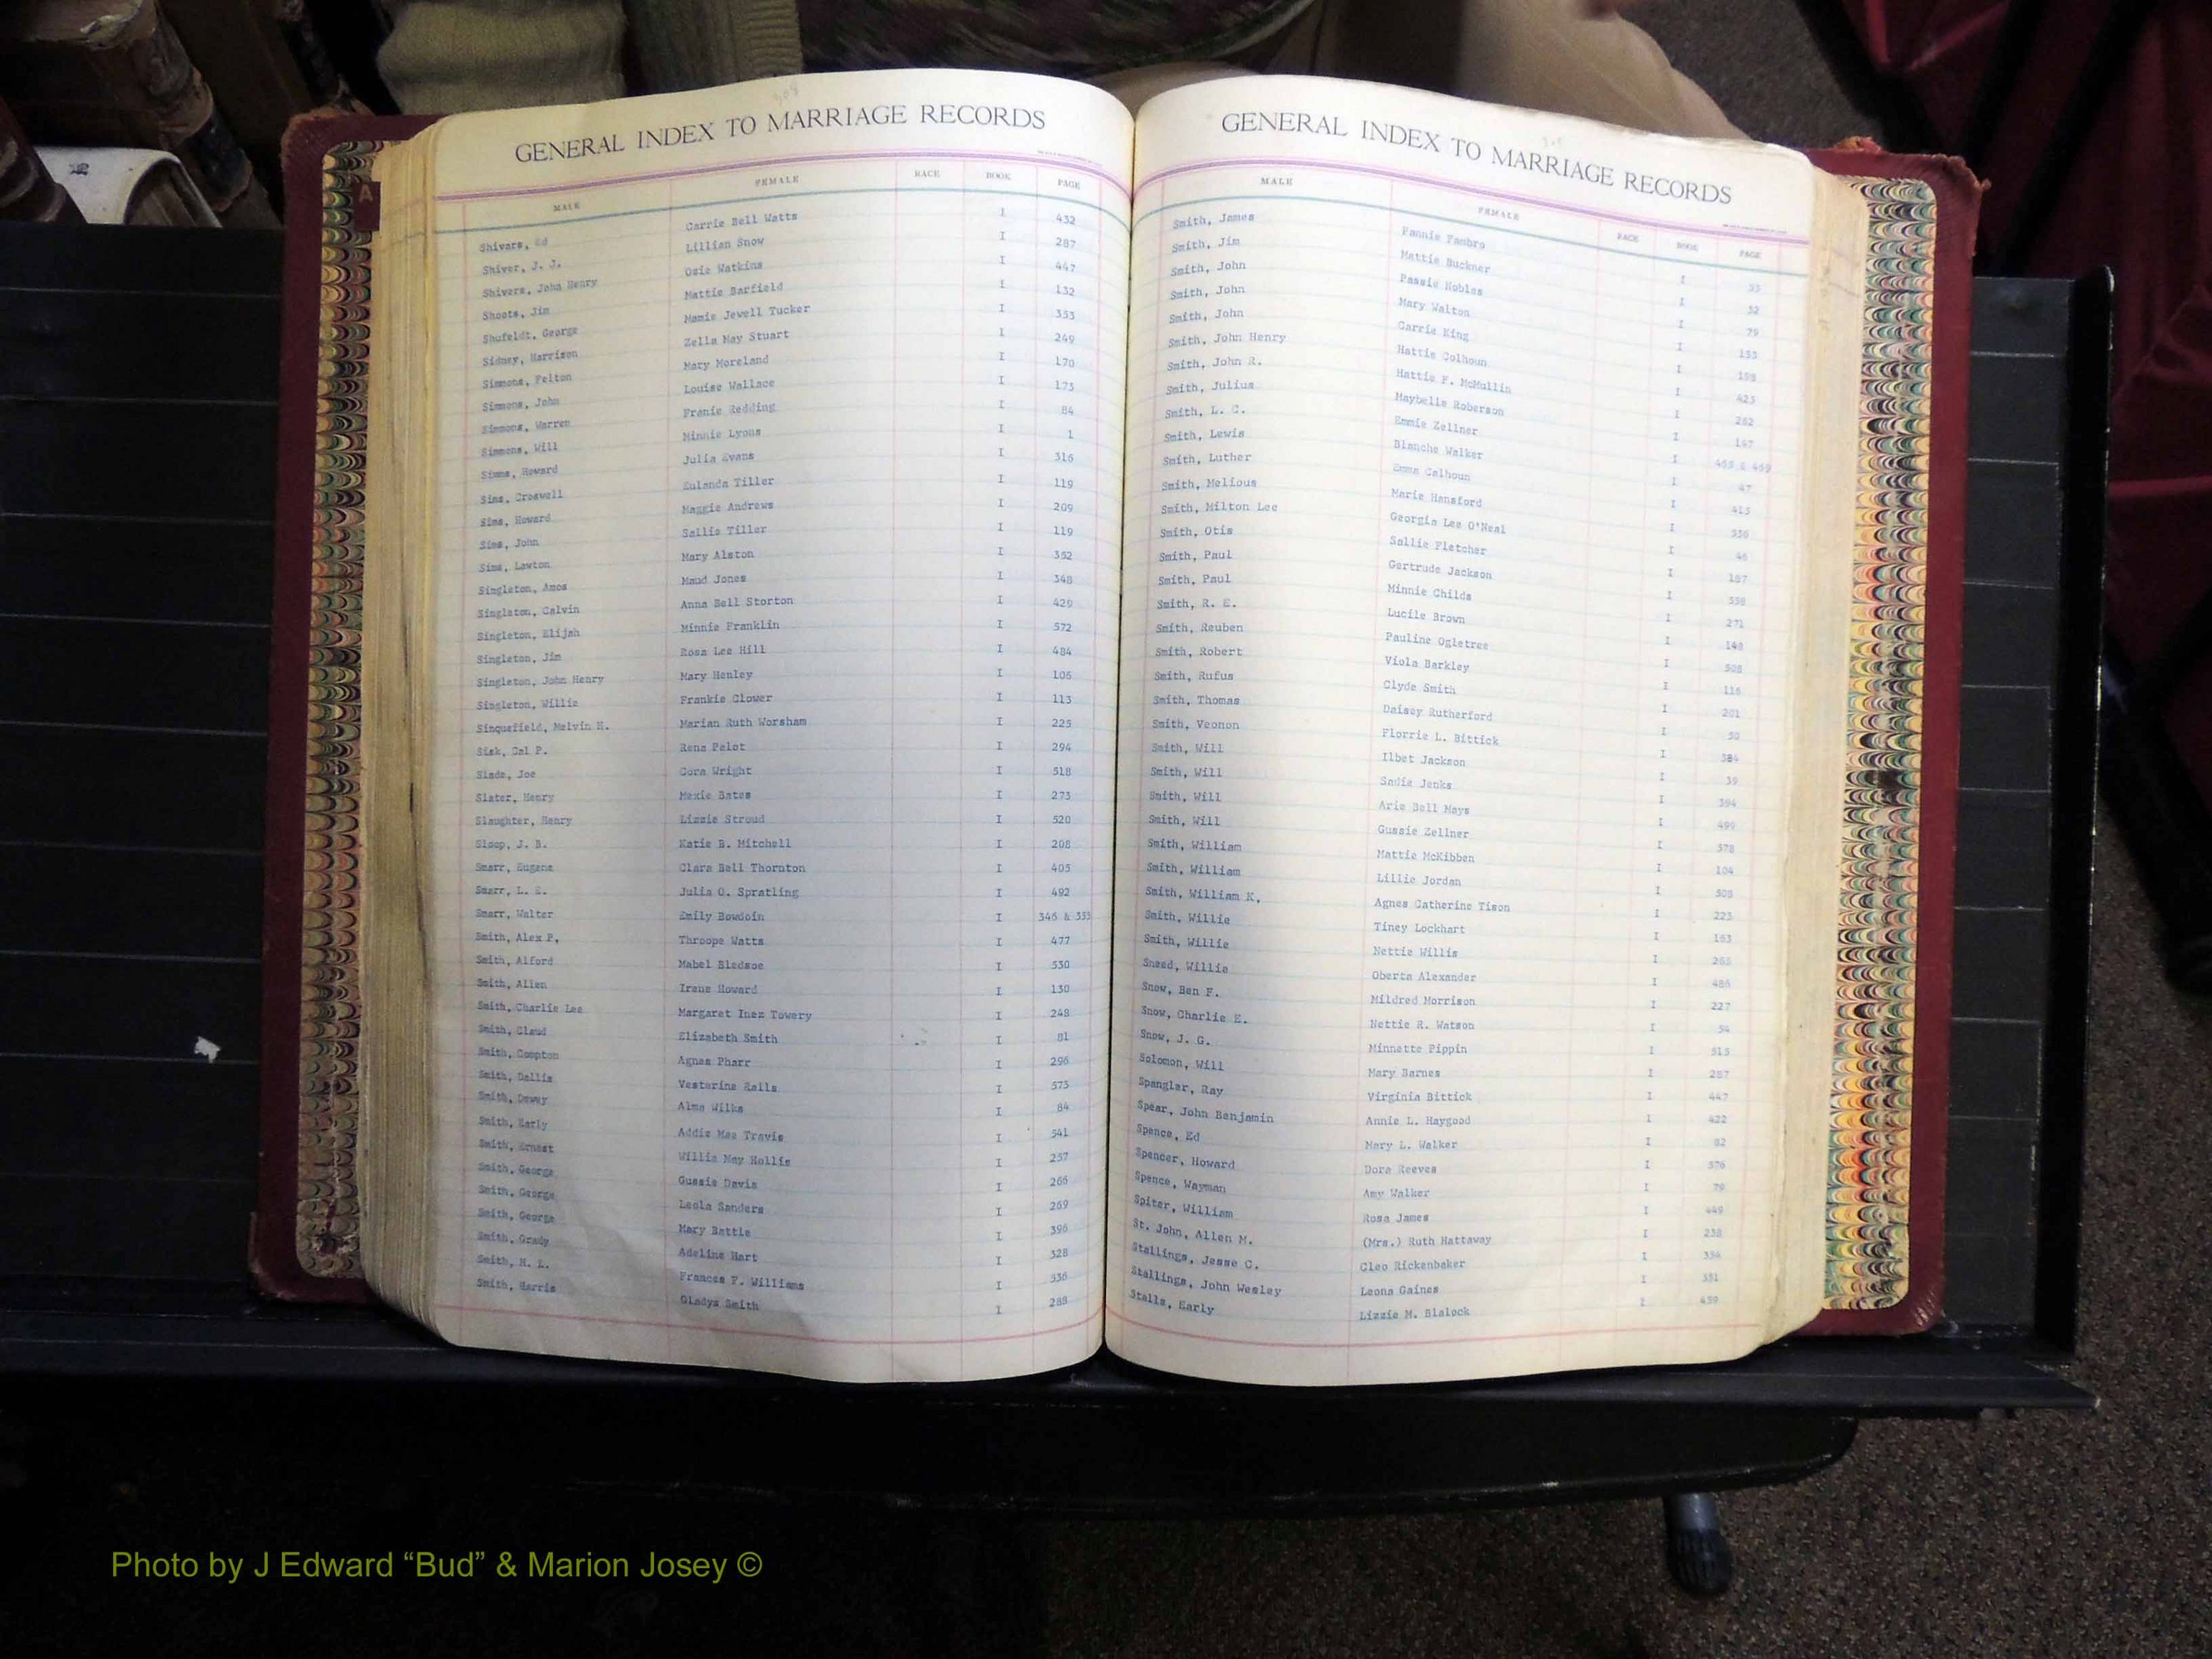 GENERAL INDEX TO MARRIAGE RECORDS
MALE FEMALE RACE BOOK PAGE
Shivars, Ed Carrie Bell Watts I 432
Shiver, J. J. Lillian Snow I 287
Shivers, John Henry Ozie Watkins I 447
Shoots, Jim Mattie Barfield I 132
Shufeldt, George Mamie Jewell Tucker I 353
Sidney, Harrison Zella May Stuart I 249
Simmons, Felton Mary Moreland I 170
Simmons, John Louise Wallace I 173
Simmons, Warren Franie Redding I 84
Simmons, Will Minnie Lyons I 1
Simms, Howard Julia Evans I 316
Sims, Creswell Eulanda Tiller I 119
Sims, Howard Maggie Andrews I 209
Sims, John Sallie Tiller I 119
Sims, Lawton Mary Alston I 352
Singleton, Amos Maud Jones I 348
Singleton, Calvin Anna Bell Storton I 429
Singleton, Elijah Minnie Franklin I 572
Singleton, Jim Rosa Lee Hill I 484
Singleton, John Henry Mary Henley I 106
Singleton, Willie Frankie Clower I 113
Sinquefield, Melvin H. Marian Ruth Worsham I 225
Sisk, Cal P. Rena Pelot I 294
Slade, Joe Cora Wright I 518
Slater, Henry Mexie Bates I 273
Slaughter, Henry Lizzie Stroud I 520
Sloop, J. B. Katie B. Mitchell I 208
Smarr, Eugene Clara Bell Thornton I 405
Smarr, L. E. Julia O. Spratling I 492
Smarr, Walter Emily Bowdoin I 346 & 353
Smith, Alex P, Throope Watts I 477
Smith, Alford Mabel Bledsoe I 530
Smith, Allen Irene Howard I 130
Smith, Charlie Lee Margaret Inez Towery I 248
Smith, Claud Elizabeth Smith I 81
Smith, Compton Agnes Pharr I 296
Smith, Dallis Vesterine Rails I 573
Smith, Dewey Alma Wilks I 84
Smith, Early Addie Mae Travis I 541
Smith, Ernest Willie May Hollis I 257
Smith, George Gussie Davis I 266
Smith, George Leola Sanders I 269
Smith, George Mary Battle I 396
Smith, Grady Adeline Hart I 328
Smith, H. L. Frances F. Williams I 336
Smith, Harris Gladys Smith I 288
GENERAL INDEX TO MARRIAGE RECORDS
MALE FEMALE RACE BOOK PAGE
Smith, James Fannie Fambro I
Smith, Jim Mattie Buckner I 32
Smith, John Passie Nobles I 79
Smith, John Mary Walton I 153
Smith, John Carrie King I 198
Smith, John Henry Hattie Colhoun I 423
Smith, John R. Hattie F. McMullin I 262
Smith, Julius Maybelle Roberson I 147
Smith, L. C. Emmie Zellner I 465 & 469
Smith, Lewis Blanche Walker I 47
Smith, Luther Emma Calhoun I 415
Smith, Melious Marie Hansford I 536
Smith, Milton Lee Georgia Lee O'Neal I 46
Smith, Otis Sallie Fletcher I 187
Smith, Paul Gertrude Jackson I 558
Smith, Paul Minnie Childs I 271
Smith, R. E. Lucile Brown I 148
Smith, Reuben Pauline Ogletree I 508
Smith, Robert Viola Barkley I 116
Smith, Rufus Clyde Smith I 201
Smith, Thomas Daisey Rutherford I 50
Smith, Veonon Florrie L. Bittick I 384
Smith, Will Ilbet Jackson I 39
Smith, Will Sadie Jenks I 394
Smith, Will Arie Bell Mays I 499
Smith, Will Gussie Zellner I 578
Smith, William Mattie McKibben I 104
Smith, William Lillie Jordan I 508
Smith, William K, Agnes Catherine Tison I 223
Smith, Willie Tiney Lockhart I 163
Smith, Willie Nettie Willis I 265
Sneed, Willie Oberta Alexander I 486
Snow, Ben F. Mildred Morrison I 227
Snow, Charlie E. Nettie R. Watson I 54
Snow, J. G. Minnette Pippin I 515
Solomon, Will Mary Barnes I 287
Spangler, Ray Virginia Bittick I 447
Spear, John Benjamin Annie L. Haygood I 422
Spence, Ed Mary L. Walker I 82
Spencer, Howard Dora Reeves I 576
Spence, Wayman Amy Walker I 79
Spiter, William Rosa James I 449
St. John, Allen M. (Mrs.) Ruth Hattaway I 238
Stallings, Jesse C. Cleo Rickenbaker I 354
Stallings, John Wesley Leona Gaines I 331
Stalls, Early Lizzie M. Blalock I 459
Photo by J Edward “Bud” & Marion Josey ©